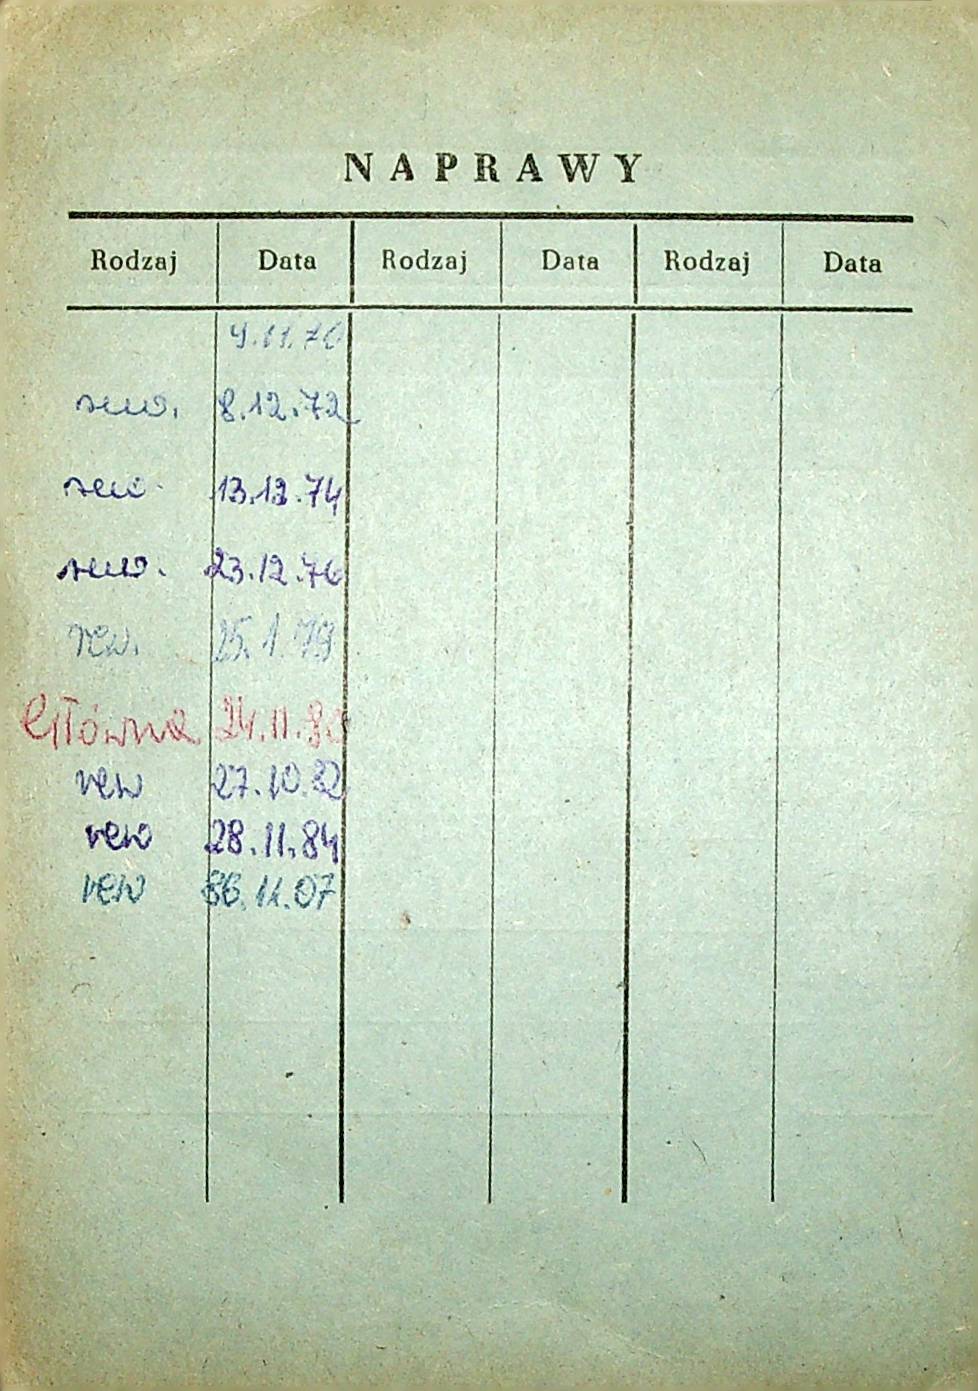 NAPRAWY
Rodzaj Data Rodzaj Data Rodzaj Data
4.11.70
rew. 8.12.72
rew. 13.12.74
rew. 23.12.76
rew. 25.1.79
Główna 24.11.80
rew 27.10.82
rew 28.11.84
rew 86.11.07